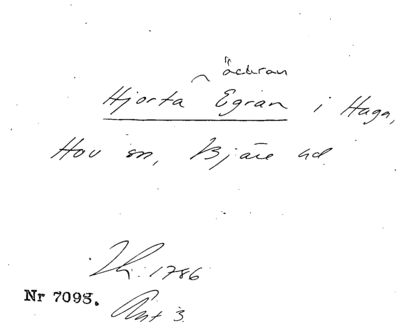 äckran
Hjorta Egran i Haga,
Hov sn, Bjäre hd
Lhs. 1786
Nr 7098. Akt 3.